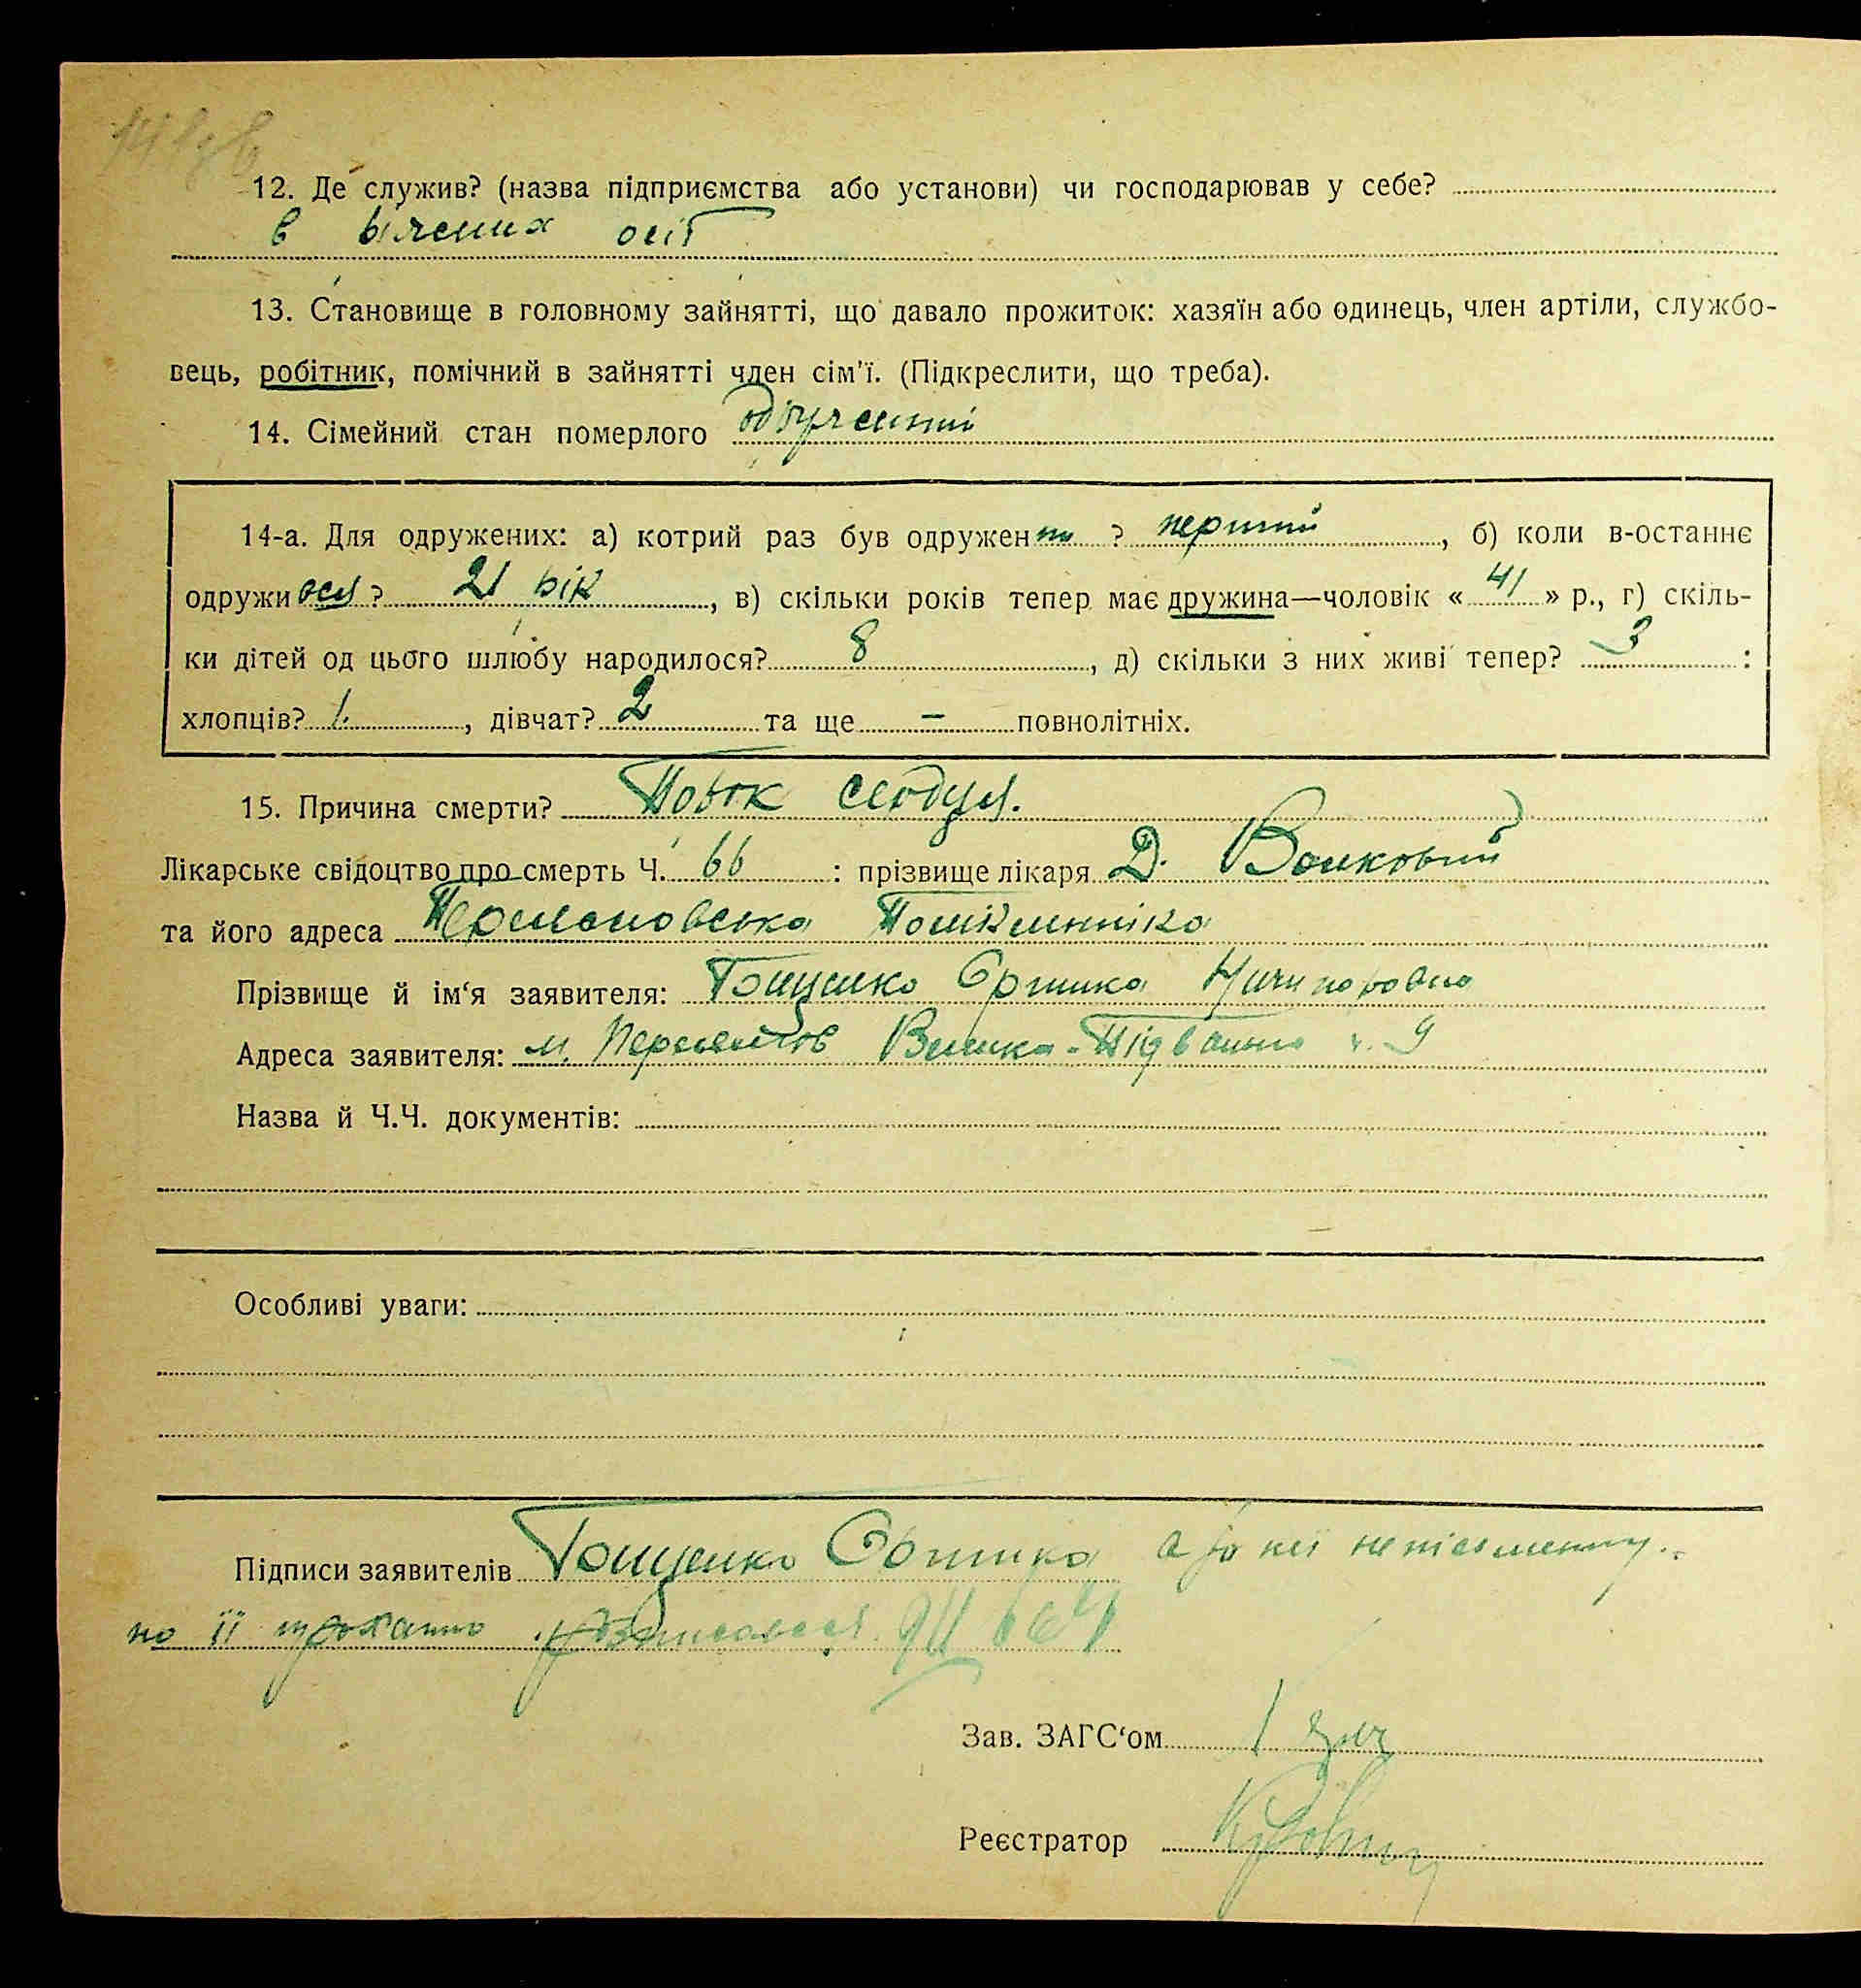 12. Де служив? (назва підприємства або установи) чи господарював у себе?
в вільних осіб
13. Становище в головному зайнятті, що давало прожиток: хазяїн або одинець, член артіли, службо-
вець, робітник, помічний в зайнятті член сім'ї. (Підкреслити, що треба).
14. Сімейний стан померлого одружений
14-а. Для одружених: а) котрий раз був одружен ? перший, б) коли в-останнє
одружився? 21 рік, в) скільки років тепер має дружина—чоловік «41» р., г) скіль-
ки дітей од цього шлюбу народилося? 8, д) скільки з них живі тепер? 3:
хлопців? 1., дівчат? 2 та ще – повнолітніх.
15. Причина смерти?
Лікарське свідоцтво про смерть Ч. 66 : прізвище лікаря Д.
та його адреса
Прізвище й ім'я заявителя: Тощенко Оришка Ничипоровна
Адреса заявителя: м. Велика-Підвальна ч. 9
Назва й Ч.Ч. документів:
Особливі уваги:
Підписи заявителів Тощенко Оришка а за неї неписьменну
по її проханню розписався
Зав. ЗАГС'ом
Реєстратор